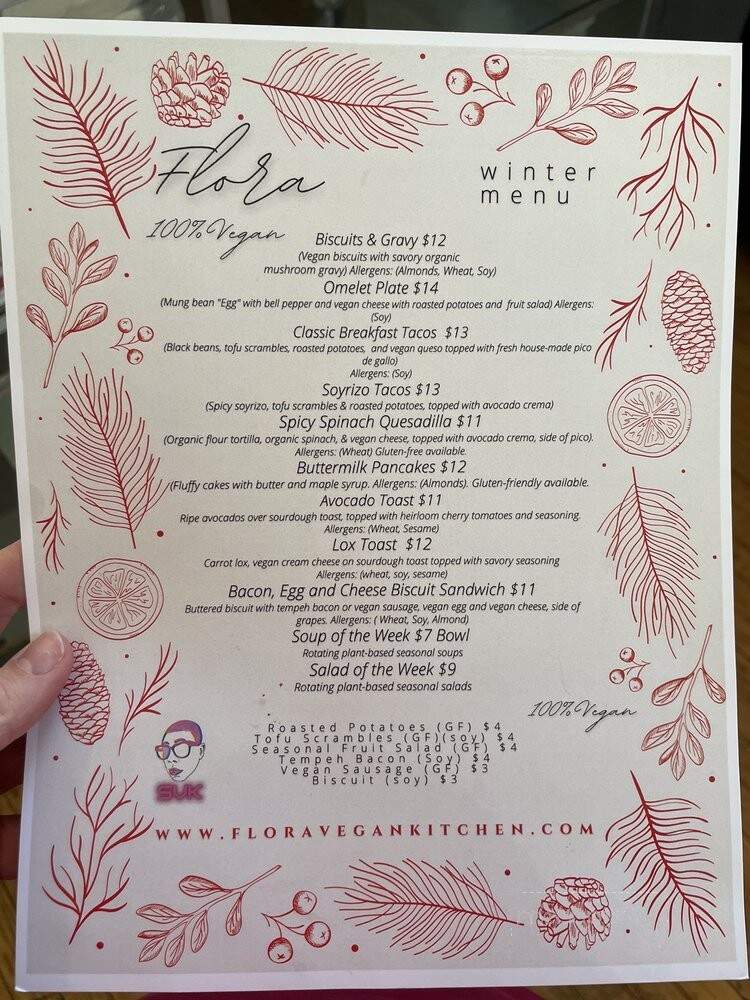 Flora
winter
menu
100% Vegan
Biscuits & Gravy $12
(Vegan biscuits with savory organic
mushroom gravy) Allergens: (Almonds, Wheat, Soy)
Omelet Plate $14
(Mung bean "Egg" with bell pepper and vegan cheese with roasted potatoes and fruit salad) Allergens:
(Soy)
Classic Breakfast Tacos $13
(Black beans, tofu scrambles, roasted potatoes, and vegan queso topped with fresh house-made pico
de gallo)
Allergens: (Soy)
Soyrizo Tacos $13
(Spicy soyrizo, tofu scrambles & roasted potatoes, topped with avocado crema)
Spicy Spinach Quesadilla $11
(Organic flour tortilla, organic spinach, & vegan cheese, topped with avocado crema, side of pico).
Allergens: (Wheat) Gluten-free available.
Buttermilk Pancakes $12
(Fluffy cakes with butter and maple syrup. Allergens: (Almonds). Gluten-friendly available.
Avocado Toast $11
Ripe avocados over sourdough toast, topped with heirloom cherry tomatoes and seasoning.
Allergens: (Wheat, Sesame)
Lox Toast $12
Carrot lox, vegan cream cheese on sourdough toast topped with savory seasoning
Allergens: (wheat, soy, sesame)
Bacon, Egg and Cheese Biscuit Sandwich $11
Buttered biscuit with tempeh bacon or vegan sausage, vegan egg and vegan cheese, side of
grapes. Allergens: ( Wheat, Soy, Almond)
Soup of the Week $7 Bowl
Rotating plant-based seasonal soups
Salad of the Week $9
Rotating plant-based seasonal salads
100% Vegan
Roasted Potatoes (GF) $4
Tofu Scrambles (GF)(soy) $4
Seasonal Fruit Salad (GF) $4
Tempeh Bacon (Soy) $4
Vegan Sausage (GF) $3
Biscuit (soy) $3
SVK
WWW.FLORAVEGANKITCHEN.COM